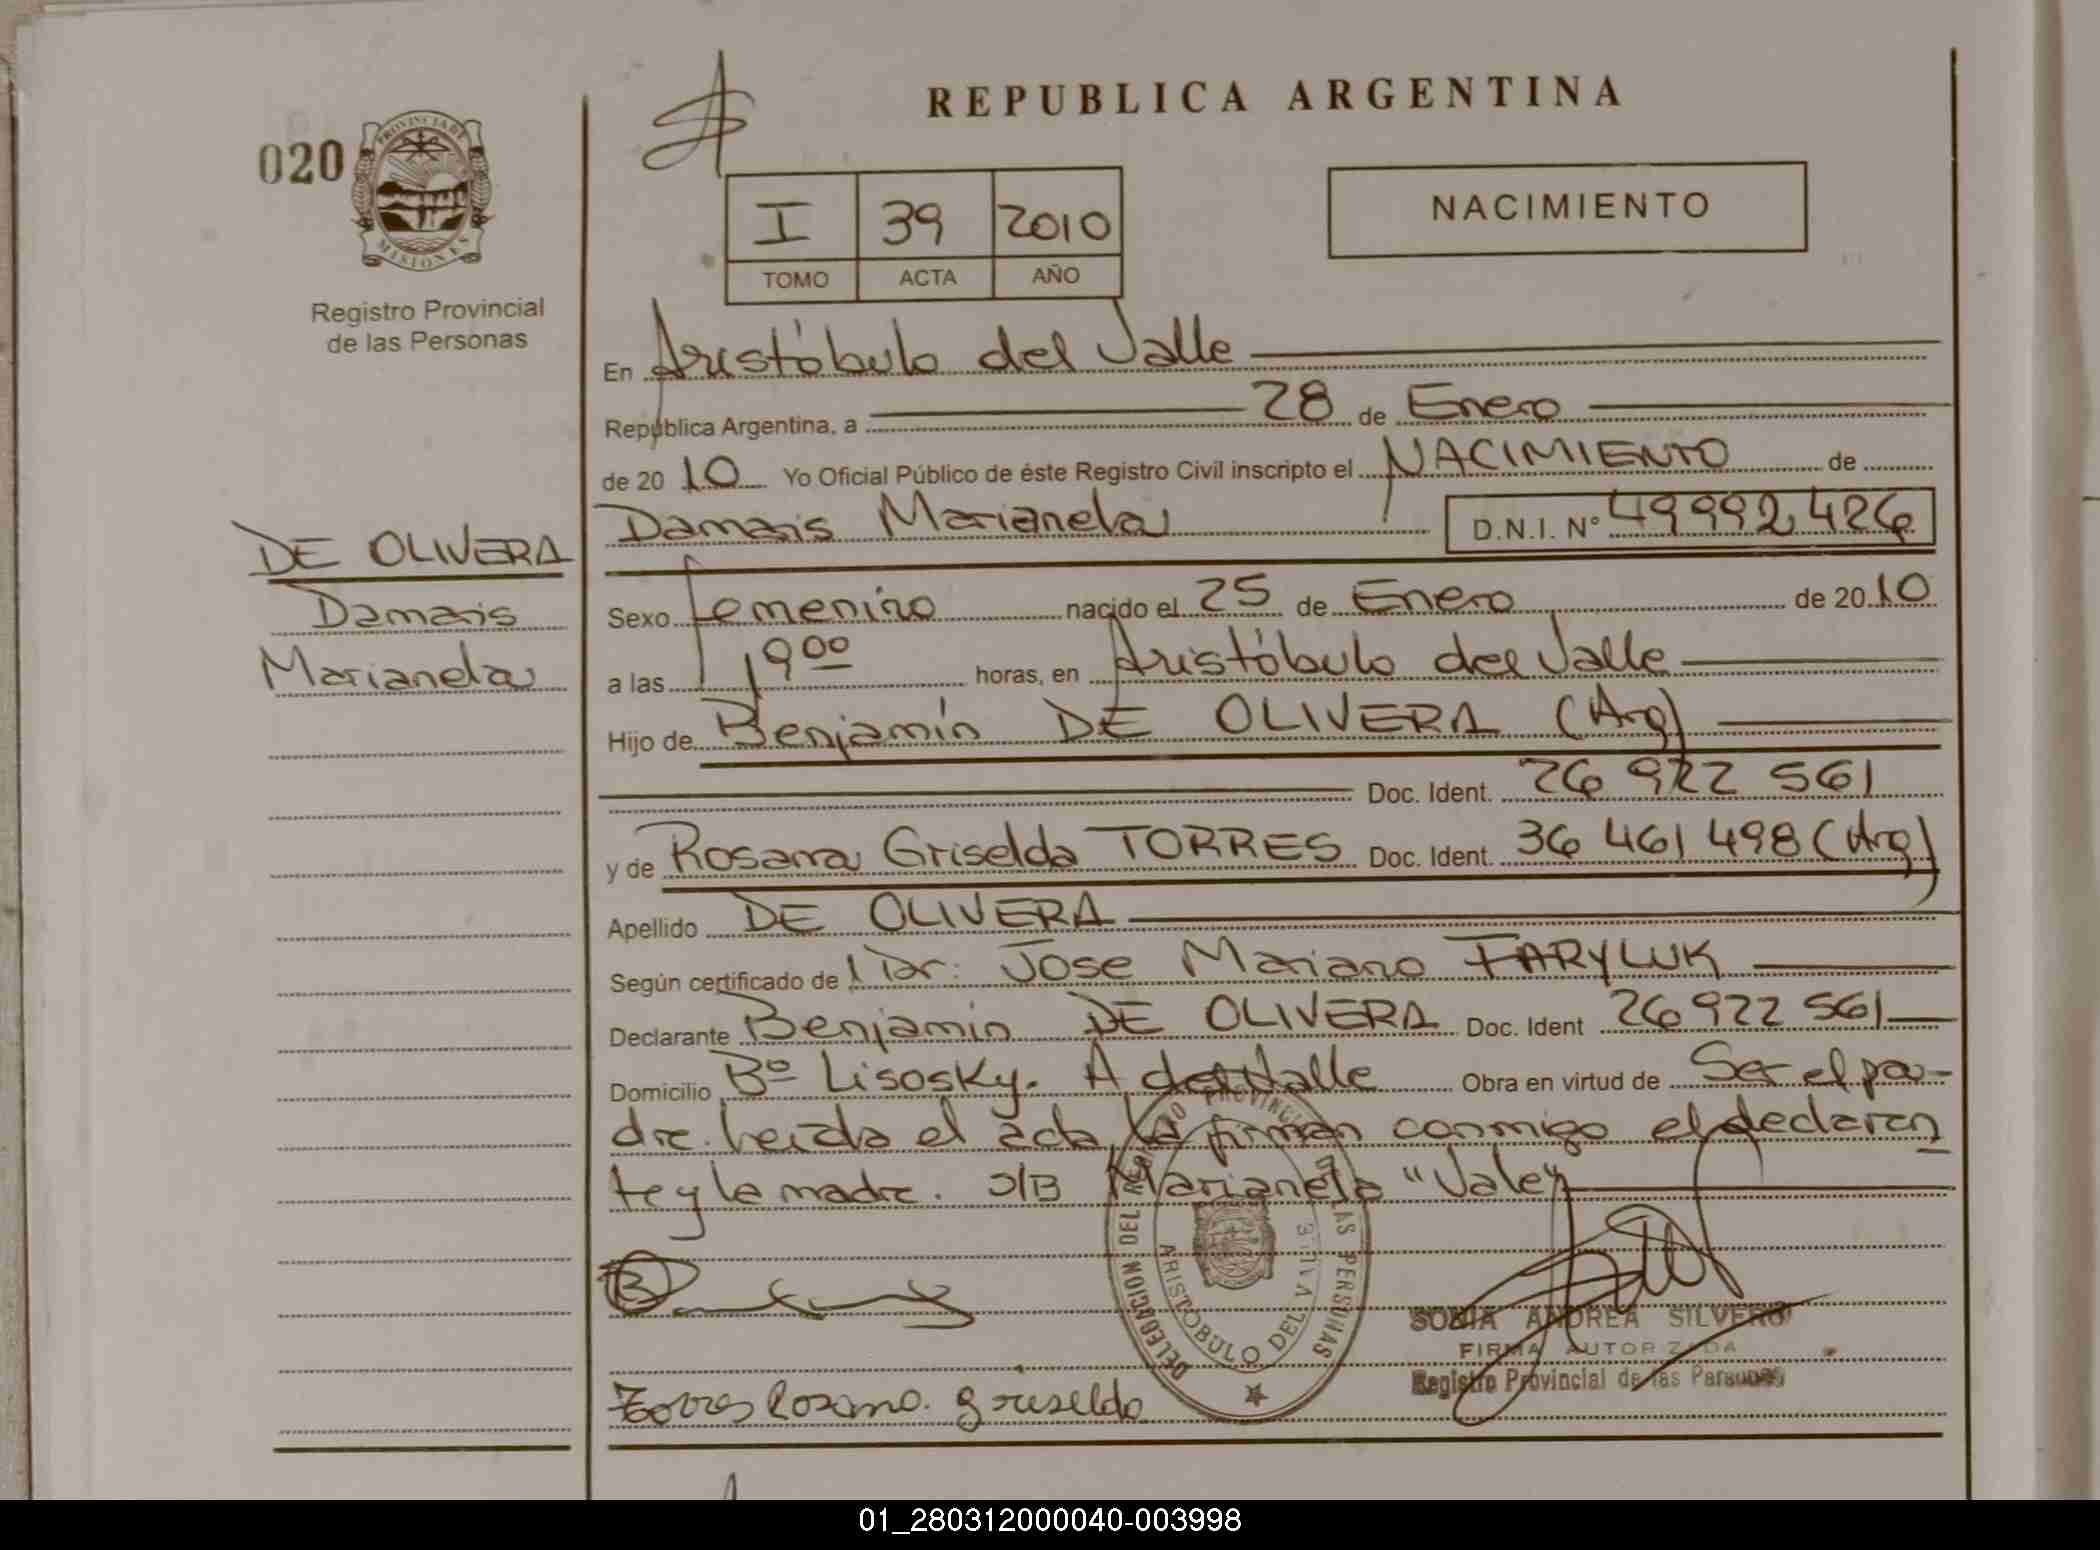 REPUBLICA ARGENTINA
020
PROVINCIA DE
MISIONES
Registro Provincial
de las Personas
I 39 2010
TOMO ACTA AÑO
NACIMIENTO
En Aristóbulo del Valle
República Argentina, a 28 de Enero
de 2010 Yo Oficial Público de éste Registro Civil inscripto el NACIMIENTO de
Damaris Marianela D.N.I. Nº 49992426
DE OLIVERA
Damaris
Marianela
Sexo femenino nacido el 25 de Enero de 2010
a las 19 00 horas, en Aristóbulo del Valle
Hijo de Benjamín DE OLIVERA (Arg)
Doc. Ident. 26 922 561
y de Rosana Griselda TORRES Doc. Ident. 36 461 498 (Arg)
Apellido DE OLIVERA
Según certificado de Dr. Jose Mariano FARYLUK
Declarante Benjamín DE OLIVERA Doc. Ident 26922561
Domicilio Bº Lisosky. A del Valle Obra en virtud de Ser el pa-
dre. Leída el acta, la firman conmigo el declaran
te y la madre. S/B Marianela "Vale"
DELEGACION DEL REGISTRO PROVINCIAL DE LAS PERSONAS
ARISTOBULO DEL VALLE
SONIA ANDREA SILVERO
FIRMA AUTORIZADA
Registro Provincial de las Personas
Torres Rosana. griselda
01_280312000040-003998